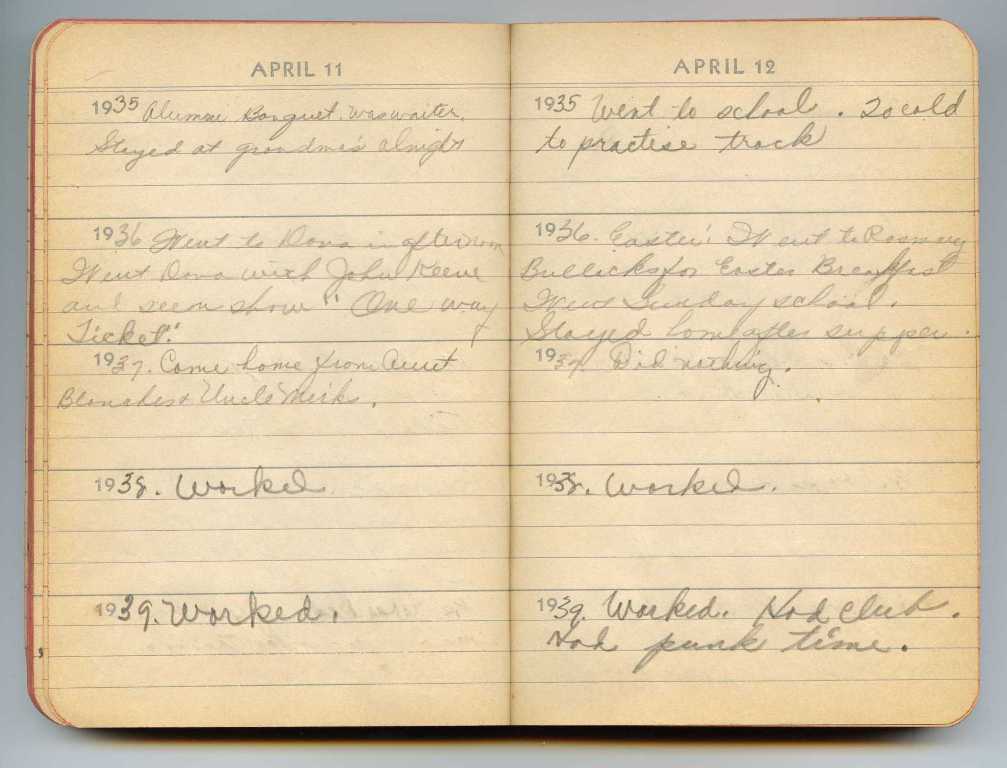 APRIL 11
1935 Alumni Banquet. was waiter.
Stayed at grandma's alnight
1936 Went to Dova in afternoon
Went Dova with John Keeve
and seen show "One way
Ticket."
1937. Come home from Aunt
Blanches & Uncle Mirks.
1938. Worked
1939. Worked.
APRIL 12
1935 Went to school. To cold
to practise track
1936. Easter. Went to Rosmary
Bullicks for Easter Breakfast
Went Sunday school.
Stayed home after supper.
1937 Did nothing.
1938. Worked.
1939. Worked. Had club.
Had punk time.